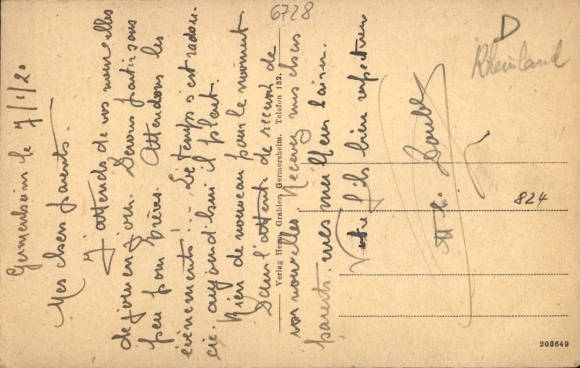 Germersheim le 7/1/20
Mes chers parents.
J'attends de vos nouvelles
de jour en jour. Serons partir sous
peu pour Attendons les
événements! - Le temps s'est radou-
cie. aujourd'hui il pleut.
Rien de nouveau pour le moment
Dans l'attente de recevoir de
vos nouvelles Recevez mes chers
parents mes meilleurs baisers.
Votre fils bien
Verlag Herm. Grahlen, Germersheim. Telefon 132.
6728
D
Rheinland
824
203649